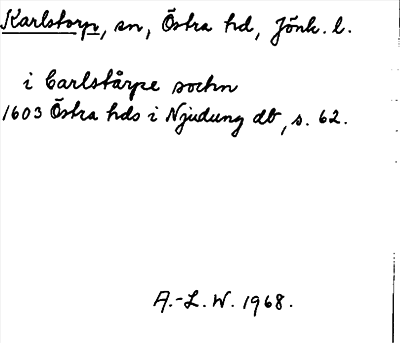 Karlstorp, sn, Östra hd, Jönk. l.
i Carlstårpe sochn
1603 Östra hds i Njudung db, s. 62.
A.-L. W. 1968.